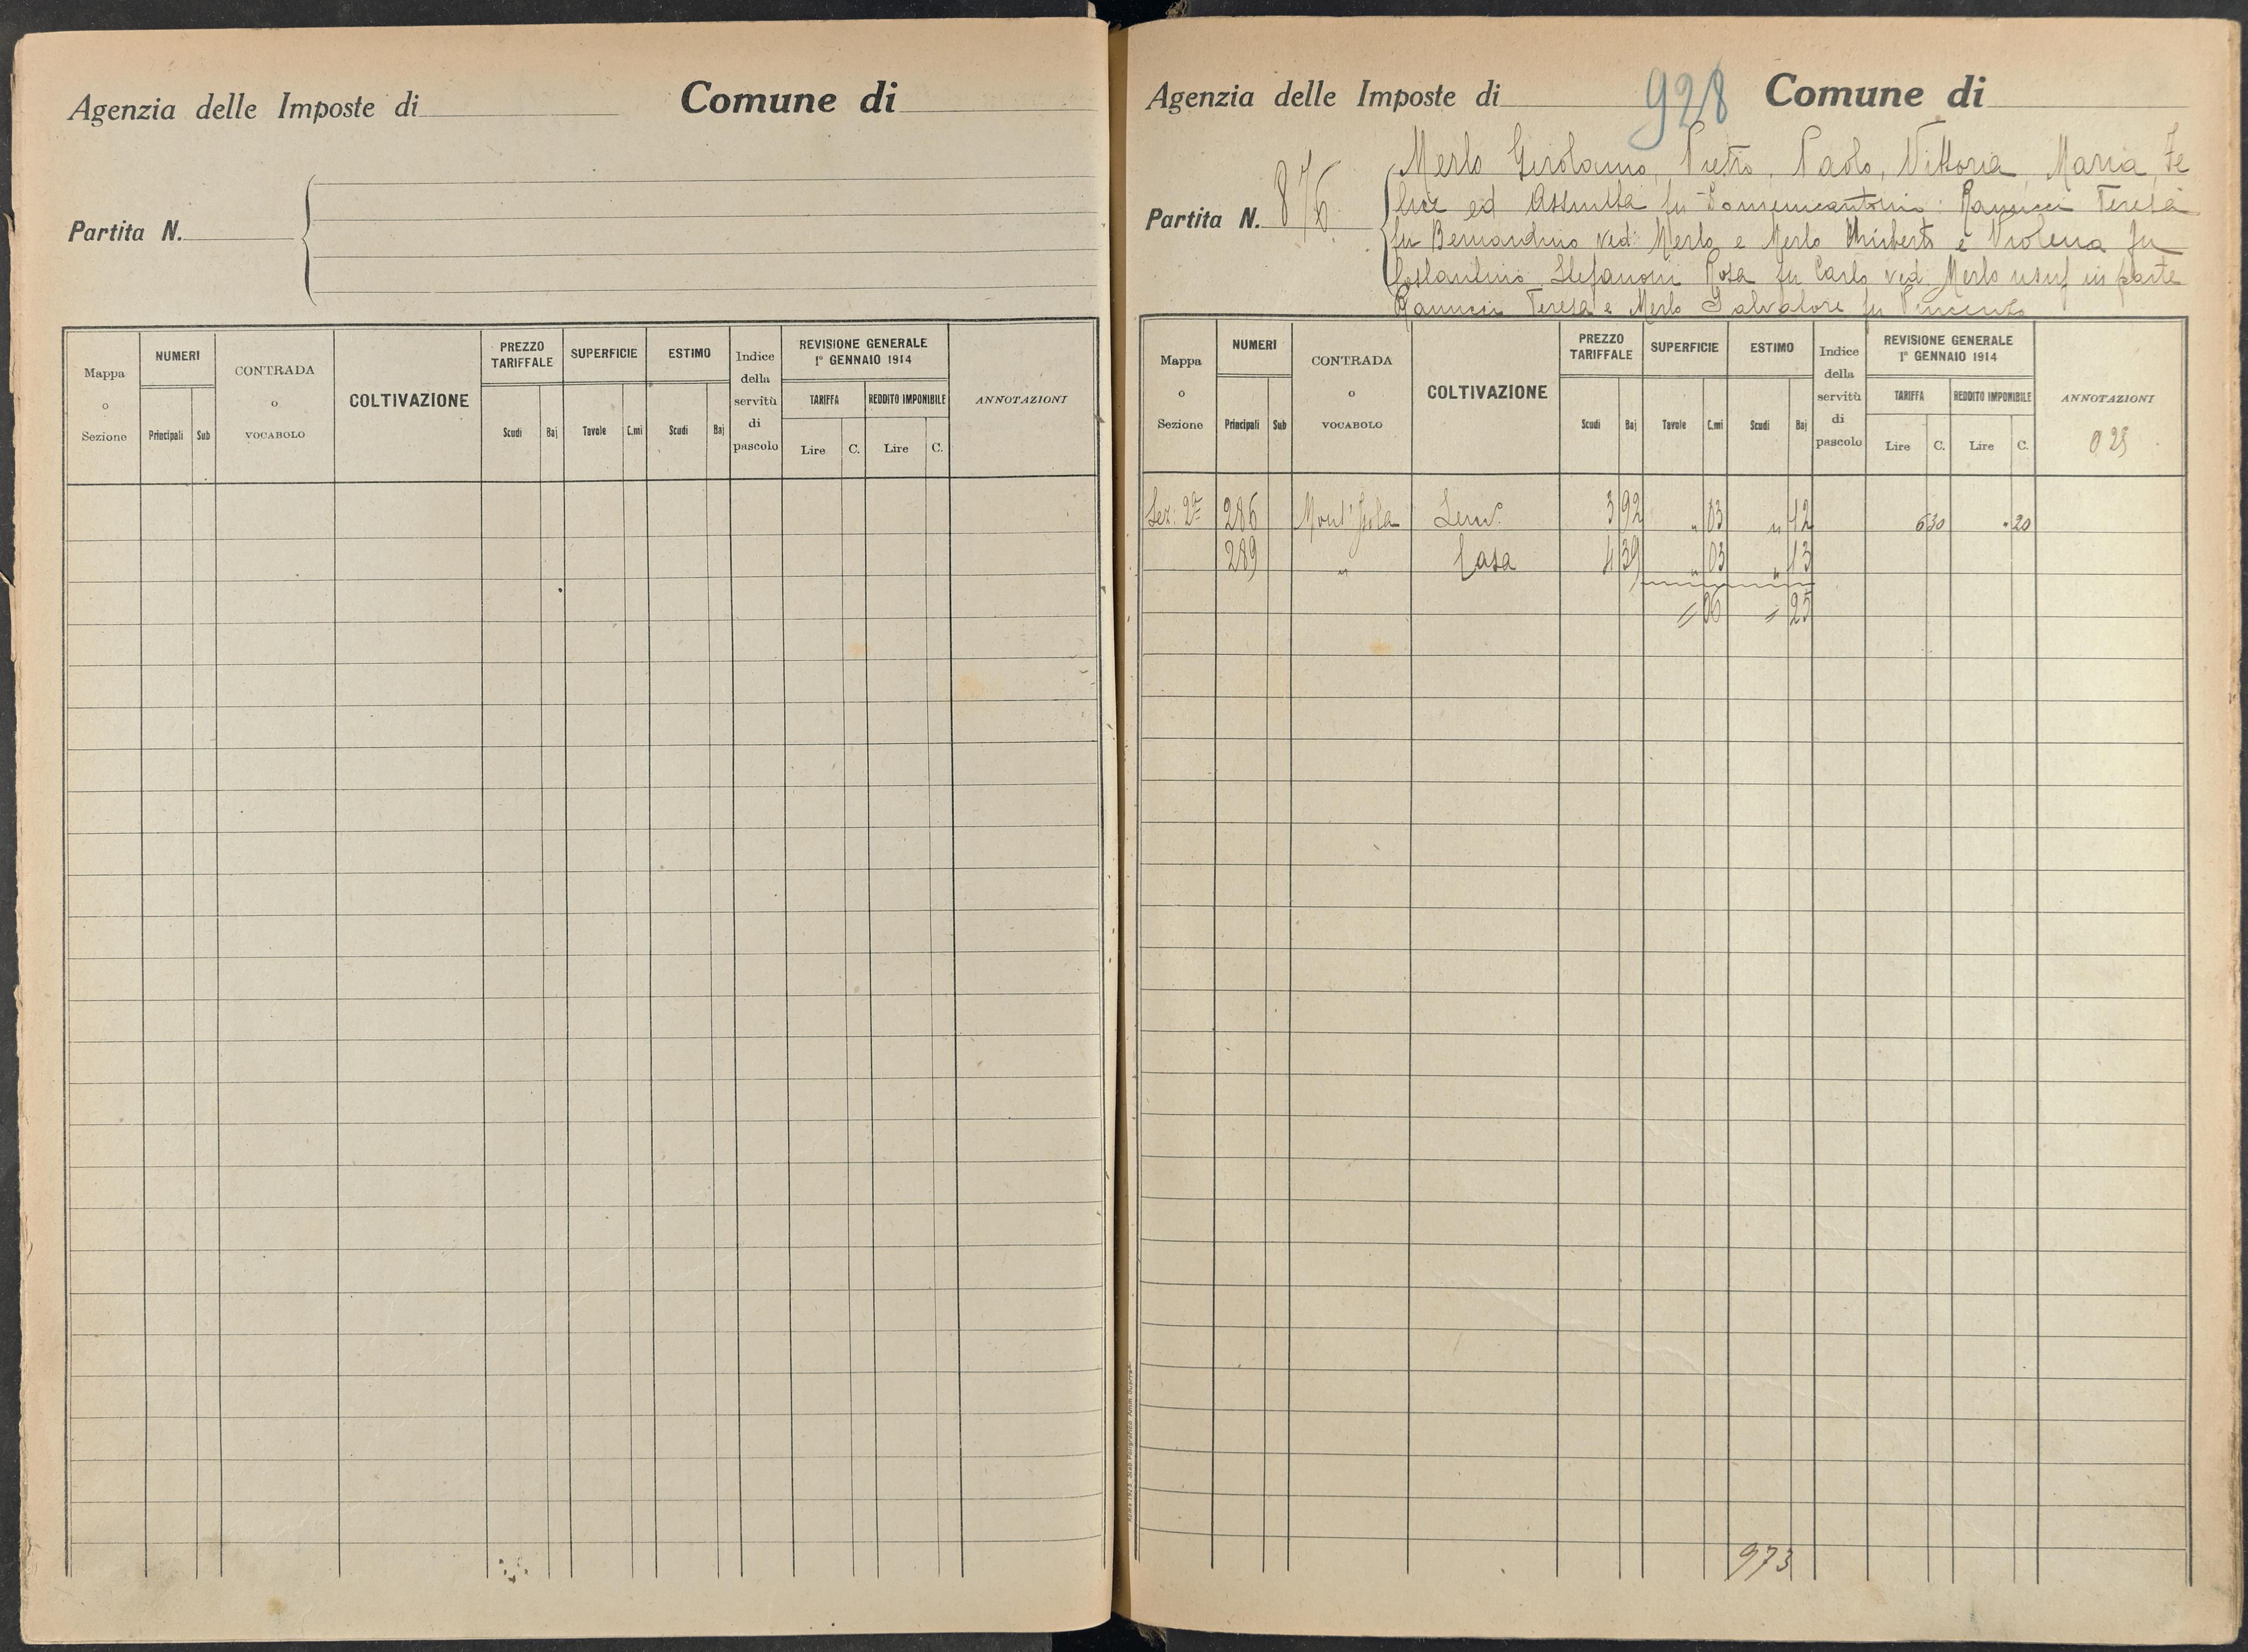 Agenzia delle Imposte di
Comune di
Partita N.
Mappa o Sezione
NUMERI
Principali
Sub
CONTRADA o VOCABOLO
COLTIVAZIONE
PREZZO TARIFFALE
Scudi
Baj
SUPERFICIE
Tavole
C.mi
ESTIMO
Scudi
Baj
Indice della servitù di pascolo
REVISIONE GENERALE
1° GENNAIO 1914
TARIFFA
Lire
C.
REDDITO IMPONIBILE
Lire
C.
ANNOTAZIONI
Agenzia delle Imposte di
928
Comune di
Partita N. 876
Merlo Girolamo, Pietro, Paolo, Vittoria, Maria, Fe
lice ed Assunta fu Domenicantonio: Ranucci Teresa
fu Bernardino ved: Merlo e Merlo Umberto e Violena fu
Costantino Stefanoni Rosa fu Carlo ved. Merlo usuf in parte
Ranucci Teresa e Merlo Salvatore fu Vincenzo
Mappa o Sezione
NUMERI
Principali
Sub
CONTRADA o VOCABOLO
COLTIVAZIONE
PREZZO TARIFFALE
Scudi
Baj
SUPERFICIE
Tavole
C.mi
ESTIMO
Scudi
Baj
Indice della servitù di pascolo
REVISIONE GENERALE
1° GENNAIO 1914
TARIFFA
Lire
C.
REDDITO IMPONIBILE
Lire
C.
ANNOTAZIONI
0 25
Sez: 2ª 286 Sem. 3 92 " 03 " 12 6 30 " 20
289 " Casa 4 39 " 03 " 13
" 06 " 25
973